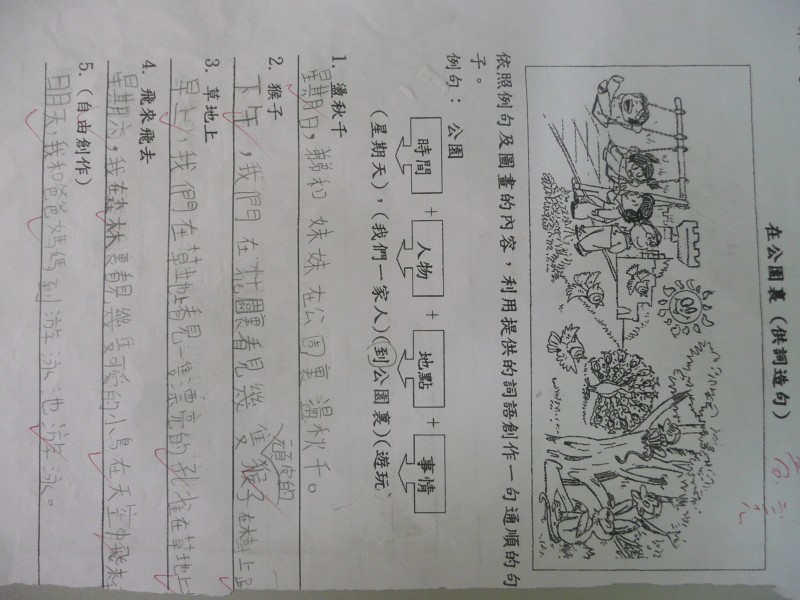 在公園裏（供詞造句）
依照例句及圖畫的內容，利用提供的詞語創作一句通順的句
子。
例句： 公園
時間 + 人物 + 地點 + 事情
（星期天），（我們一家人）（到公園裏）（遊玩
1. 盪秋千
星期日，我和妹妹在公園裏盪秋千。
2. 猴子
頑皮的
下午，我們在花園裏看見幾隻猴子在樹上
3. 草地上
早上，我們在草地看見一隻漂亮的孔雀在草地上
4. 飛來飛去
星期六，我在樹林裏看見幾隻可愛的小鳥在天空中飛來
5.（自由創作）
明天，我和爸爸媽媽到游泳池游泳。